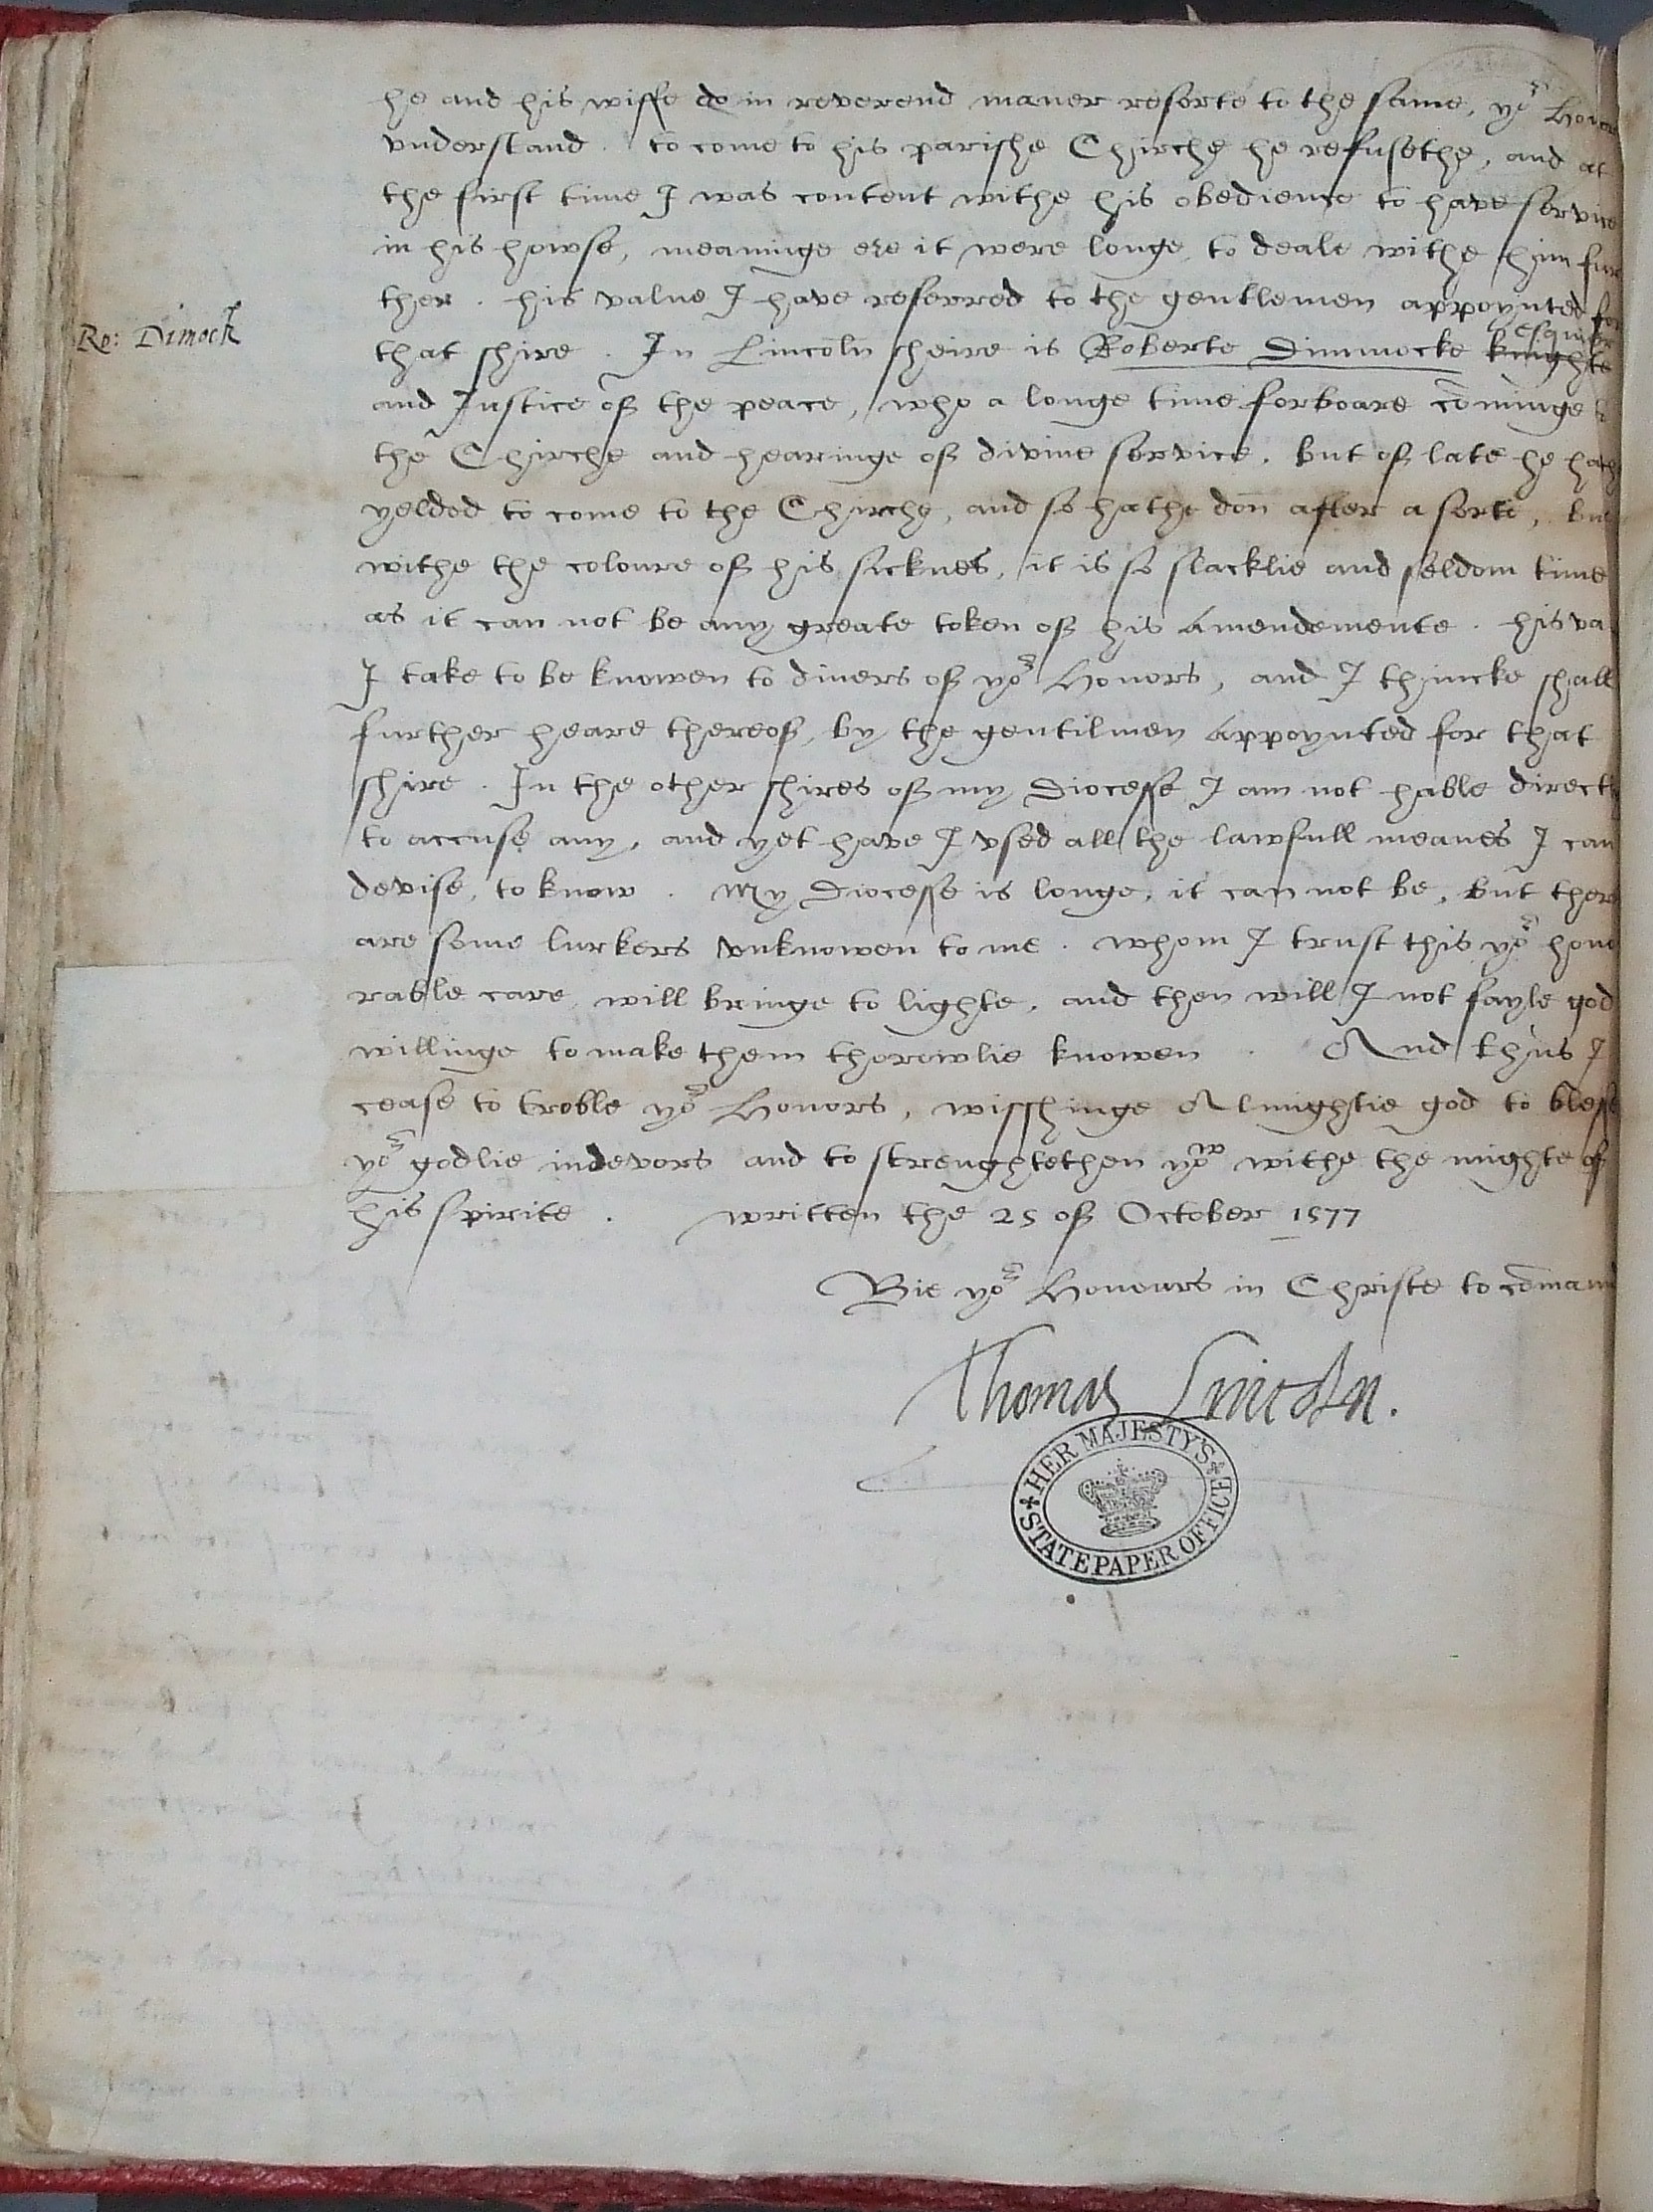 he and his wiffe do in reverend maner resorte to the same, yor Honors
vnderstand. to come to his parishe Chirche he refusethe, and at
the first time I was content withe his obedience to have service
in his howse, meaninge ere it were longe, to deale withe him fur
ther. his value I have referred to the gentlemen appoynted for
Ro: Dimock
esquier
that shire. In Lincoln sheire is Roberte Dimmocke knighte
and Justice of the peace, who a longe time forboare cominge to
the Chirche and hearinge of divine service. but of late he hathe
yelded to come to the Chirche, and so hathe don after a sorte, but
withe the coloure of his sicknes, it is so slacklie and seldom time
as it can not be any greate token of his amendemente. his va
I take to be knowen to divers of yor Honors, and I thincke shall
further heare thereof, by the gentilmen appoynted for that
shire. In the other shires of my Diocesse I am not hable directly
to accuse any, and yet have I vsed all the lawfull meanes I can
devise, to know. My Diocesse is longe, it can not be, but there
are some lurkers vnknowen to me. whom I trust this yor hono
rable care, will bringe to lighte, and then will I not fayle god
willinge to make them thorowlie knowen. And thus I
cease to troble yor Honors, wisshinge Almightie god to blesse
yor godlie indevors and to strenghtethen yow withe the mighte of
his spirite. written the 25 of October 1577
Bie yor Honours in Christe to comand
Thomas Lincoln.
HER MAJESTY'S
STATE PAPER OFFICE